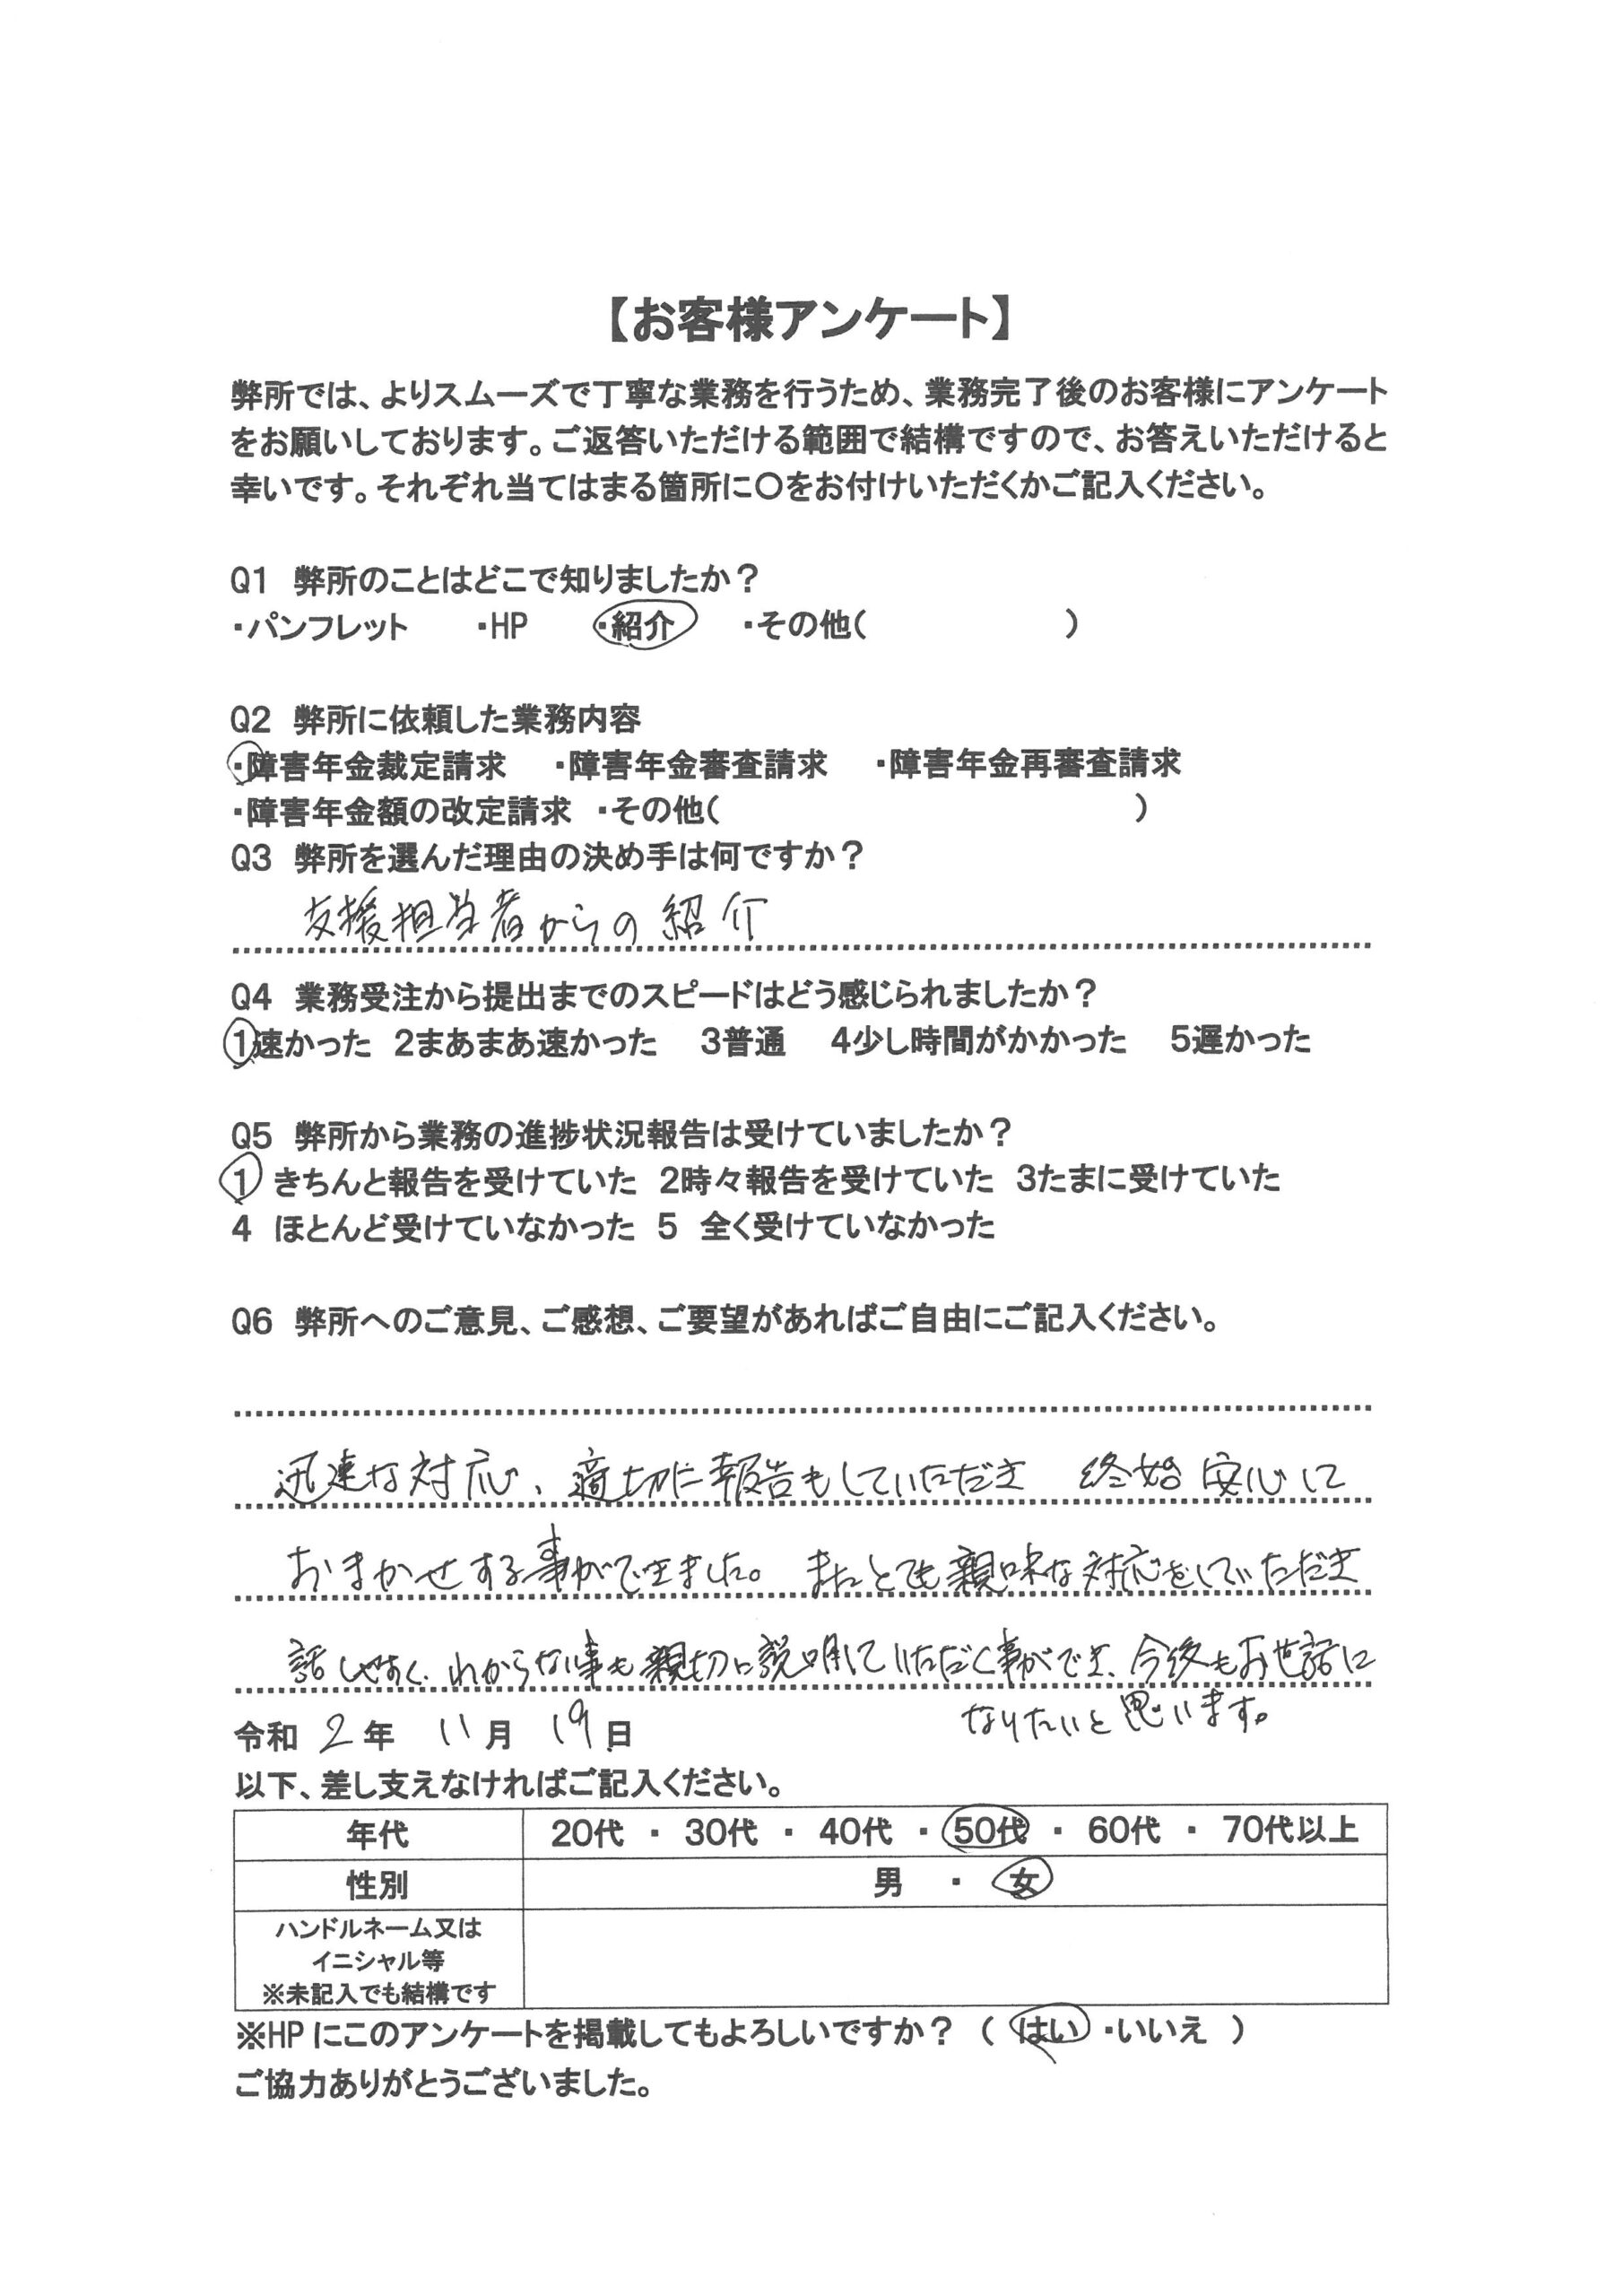 【お客様アンケート】
弊所では、よりスムーズで丁寧な業務を行うため、業務完了後のお客様にアンケート
をお願いしております。ご返答いただける範囲で結構ですので、お答えいただけると
幸いです。それぞれ当てはまる箇所に〇をお付けいただくかご記入ください。
Q1 弊所のことはどこで知りましたか？
・パンフレット ・HP ・紹介 ・その他( )
Q2 弊所に依頼した業務内容
・障害年金裁定請求 ・障害年金審査請求 ・障害年金再審査請求
・障害年金額の改定請求 ・その他( )
Q3 弊所を選んだ理由の決め手は何ですか？
支援担当者からの紹介
Q4 業務受注から提出までのスピードはどう感じられましたか？
1速かった 2まあまあ速かった 3普通 4少し時間がかかった 5遅かった
Q5 弊所から業務の進捗状況報告は受けていましたか？
1 きちんと報告を受けていた 2時々報告を受けていた 3たまに受けていた
4 ほとんど受けていなかった 5 全く受けていなかった
Q6 弊所へのご意見、ご感想、ご要望があればご自由にご記入ください。
迅速な対応、適切に報告もしていただき 終始安心して
おまかせする事ができました。またとても親味な対応をしていただき
話しやすく、わからない事も親切に説明していただく事ができ、今後もお世話に
なりたいと思います。
令和 2 年 11 月 19 日
以下、差し支えなければご記入ください。
年代 20代 ・ 30代 ・ 40代 ・ 50代 ・ 60代 ・ 70代以上
性別 男 ・ 女
ハンドルネーム又は
イニシャル等
※未記入でも結構です
※HPにこのアンケートを掲載してもよろしいですか？ ( はい ・いいえ )
ご協力ありがとうございました。